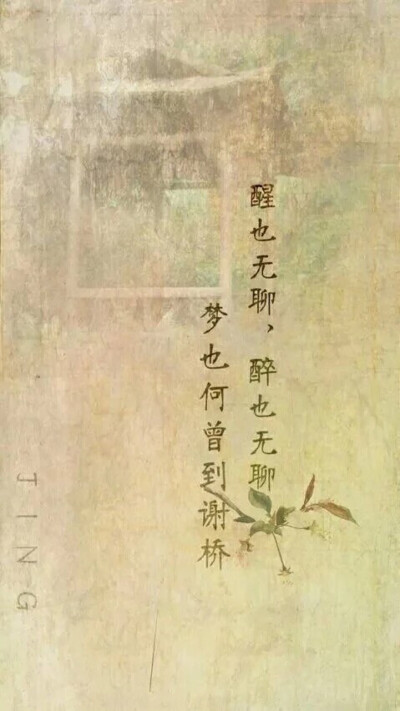 醒也无聊，醉也无聊
梦也何曾到谢桥
TING